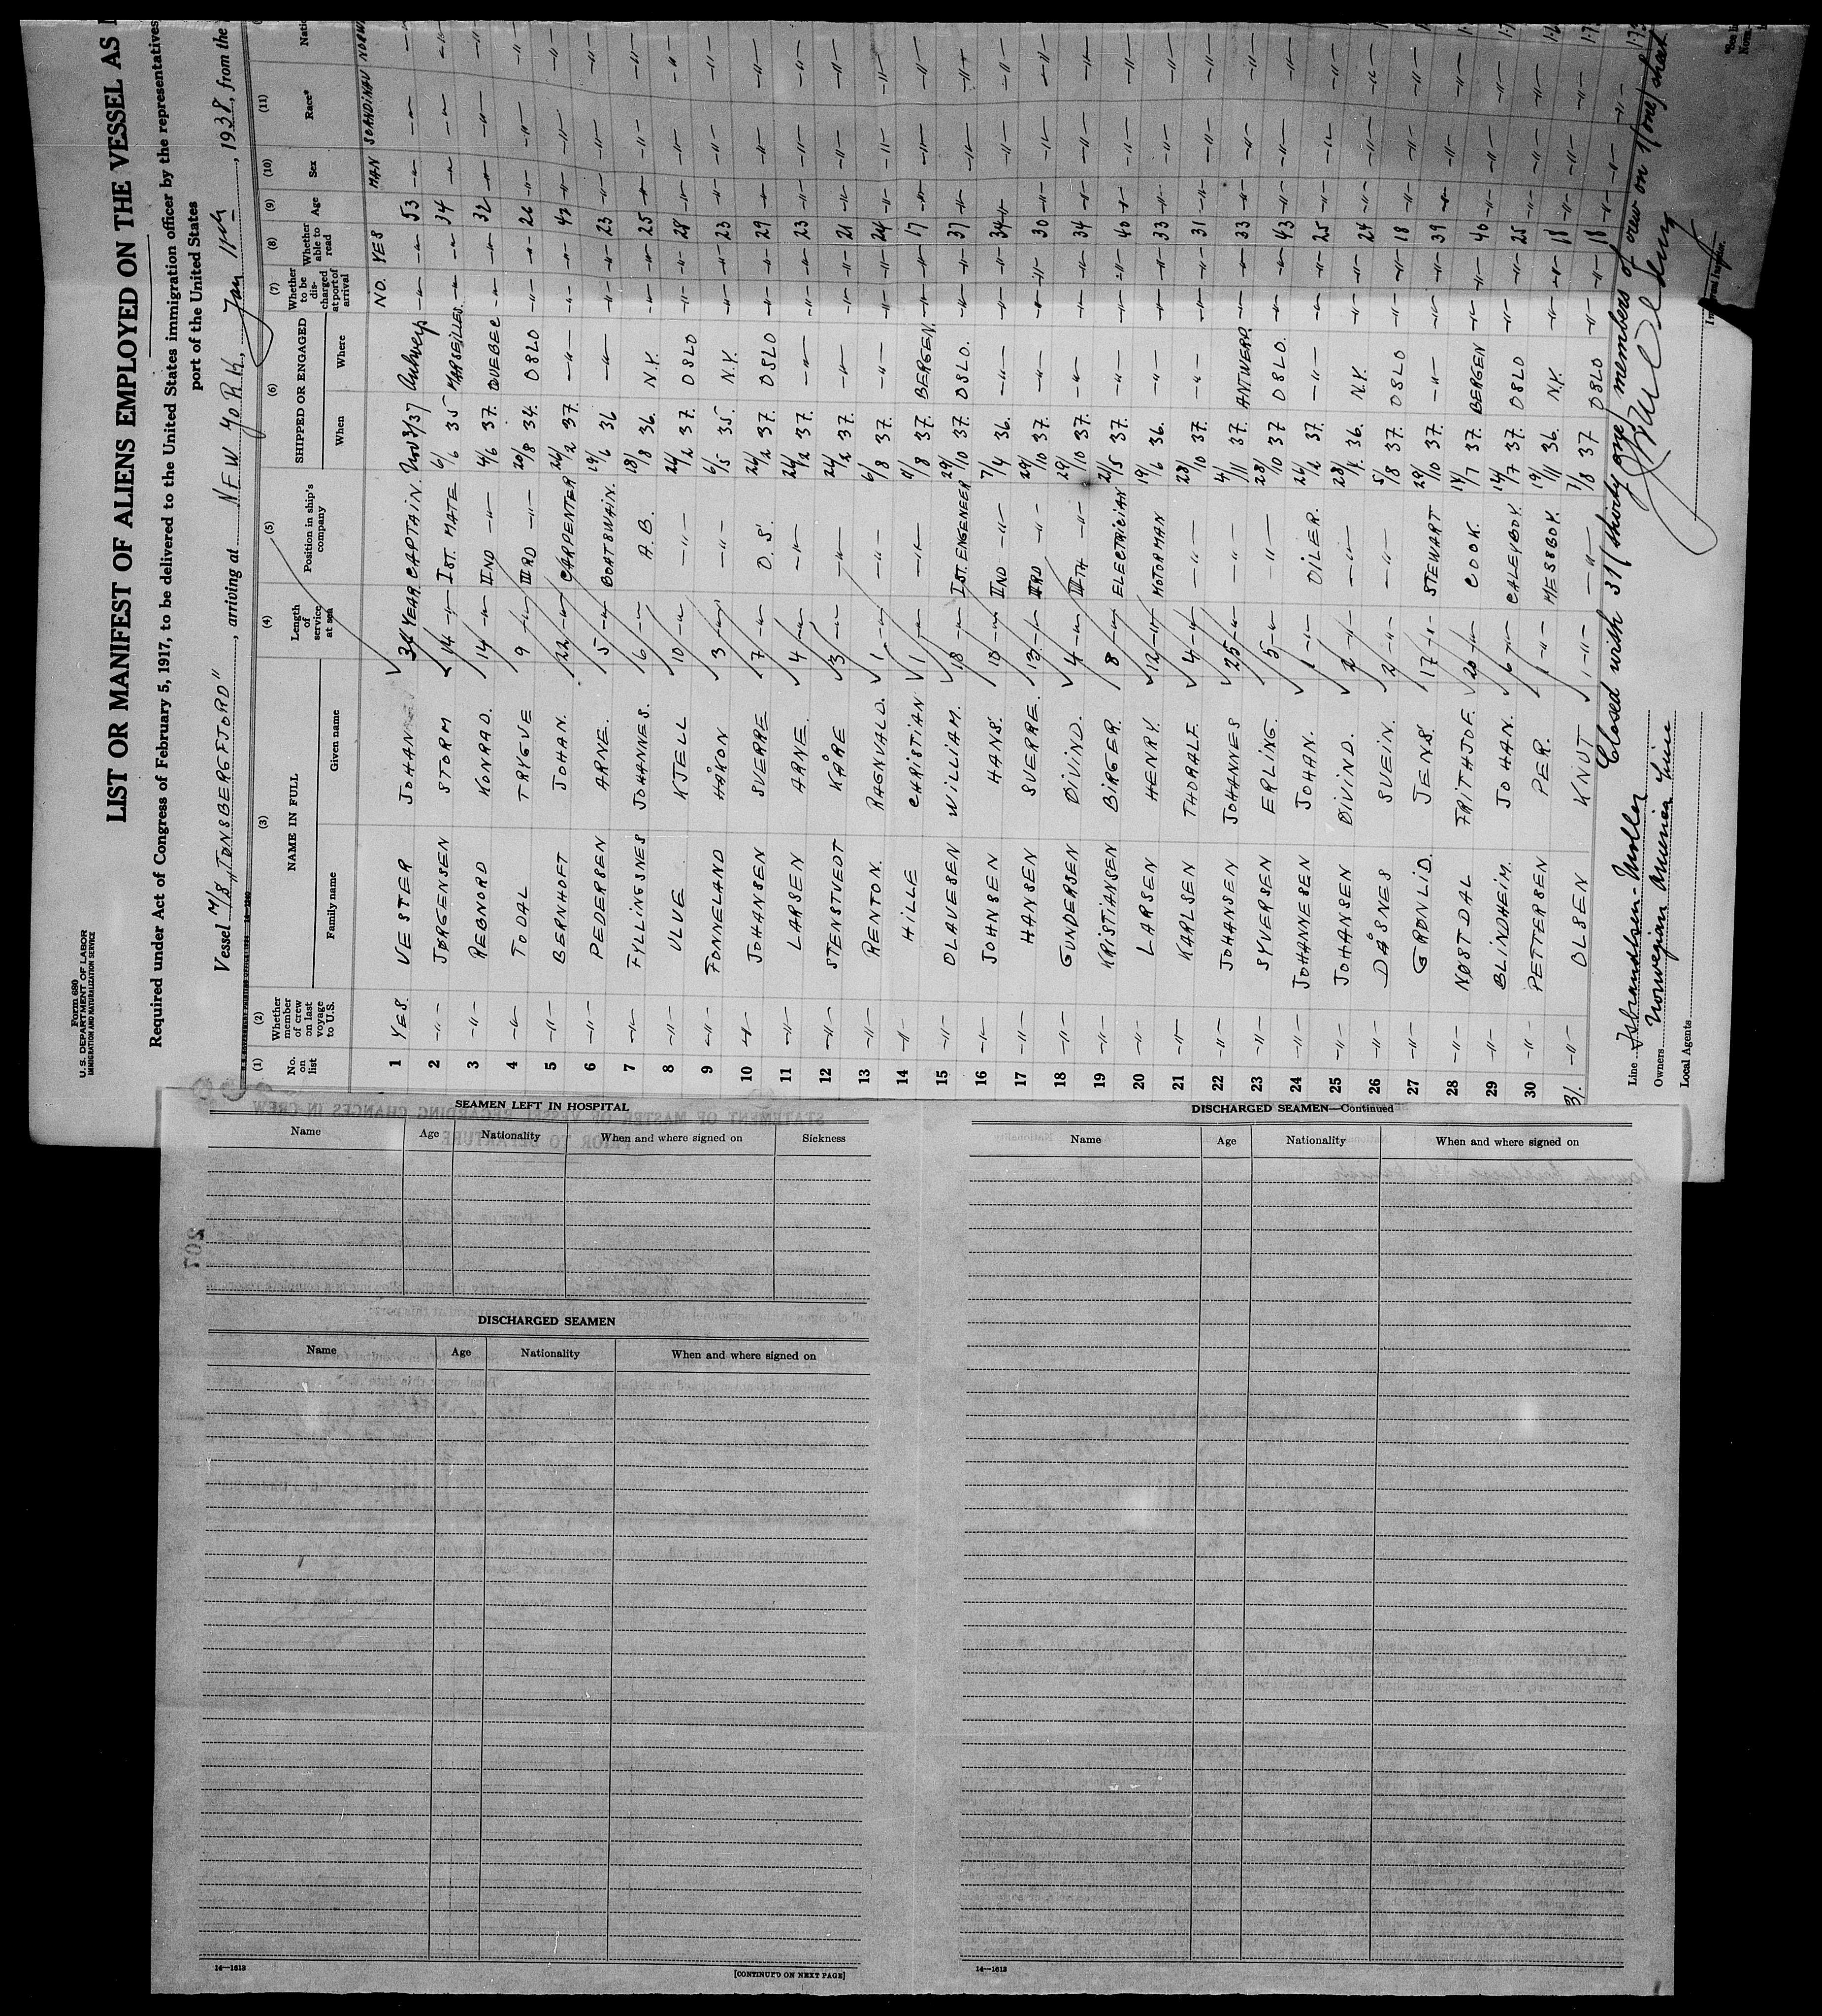 Form 680
U.S. DEPARTMENT OF LABOR
IMMIGRATION AND NATURALIZATION SERVICE
LIST OR MANIFEST OF ALIENS EMPLOYED ON THE VESSEL AS
Required under Act of Congress of February 5, 1917, to be delivered to the United States immigration officer by the representatives
port of the United States
Vessel M/S „TØNSBERGFJORD", arriving at NEW YORK, Jan 11th, 1938, from the
(1) (2) (3) (4) (5) (6) (7) (8) (9) (10) (11)
No. on list Whether member of crew on last voyage to U.S. NAME IN FULL Family name Given name Length of service at sea Position in ship's company SHIPPED OR ENGAGED When Where Whether to be discharged at port of arrival Whether able to read Age Sex Race* Nati
NO. YES MAN SCANDINAV NORW
1 YES. VESTER JOHAN 34 YEAR CAPTAIN. Nov 3/37 Antwerp -"- -"- 53 -"- -"- -"-
2 -"- JØRGENSEN STORM 14 -"- IST. MATE 6/6 35 MARSEILLES. -"- -"- 34 -"- -"- -"-
3 -"- REBNORD KONRAD. 14 -"- IIND -"- 4/6 37. QUEBEC -"- -"- 32 -"- -"- -"-
4 -"- TODAL TRYGVE 9 -"- IIIRD -"- 20/8 34. OSLO -"- -"- 26 -"- -"- -"-
5 -"- BERNHOFT JOHAN. 22 -"- CARPENTER 24/2 37. -"- -"- -"- 43 -"- -"- -"-
6 -"- PEDERSEN ARNE. 5 -"- BOATSWAIN. 19/6 36 -"- -"- -"- 23 -"- -"- -"-
7 -"- FYLLINGSNES JOHANNES. 6 -"- A.B. 18/8 36. N.Y. -"- -"- 25 -"- -"- -"-
8 -"- ULVE KJELL 10 -"- -"- 24/2 37. OSLO -"- -"- 28 -"- -"- -"-
9 -"- FONNELAND HÅKON 3 -"- -"- 6/5 35. N.Y. -"- -"- 23 -"- -"- -"-
10 -"- JOHANSEN SVERRE 7 -"- O.S. 24/2 37. OSLO -"- -"- 29 -"- -"- -"-
11 -"- LARSEN ARNE. 4 -"- -"- 24/2 37. -"- -"- -"- 23 -"- -"- -"-
12 -"- STENSTVEDT KÅRE 3 -"- -"- 24/2 37. -"- -"- -"- 21 -"- -"- -"-
13 -"- RENTON. RAGNVALD. 1 -"- -"- 6/8 37. -"- -"- -"- 24 -"- -"- -"-
14 -"- HILLE CHRISTIAN 1 -"- -"- 9/8 37. BERGEN. -"- -"- 17 -"- -"- -"-
15 -"- OLAVESEN WILLIAM. 18 -"- IST. ENGENEER 29/10 37. OSLO. -"- -"- 37 -"- -"- -"-
16 -"- JOHNSEN HANS. 10 -"- IIND -"- 7/4 36. -"- -"- -"- 34 -"- -"- -"-
17 -"- HANSEN SVERRE. 13 -"- IIIRD -"- 29/10 37. -"- -"- -"- 30 -"- -"- -"-
18 -"- GUNDERSEN ØIVIND. 4 -"- IIIITH -"- 29/10 37. -"- -"- -"- 34 -"- -"- -"-
19 -"- KRISTIANSEN BIRGER. 8 -"- ELECTRICIAN 21/5 37. -"- -"- -"- 40 -"- -"- -"-
20 -"- LARSEN HENRY. 12 -"- MOTORMAN 19/6 36. -"- -"- -"- 33 -"- -"- -"-
21 -"- KARLSEN THORALF. 4 -"- -"- 28/10 37. -"- -"- -"- 31 -"- -"- -"-
22 -"- JOHANSEN JOHANNES 25 -"- -"- 4/11 37. ANTWERP. -"- -"- 33 -"- -"- -"-
23 -"- SYVERSEN ERLING. 5 -"- -"- 28/10 37 OSLO. -"- -"- 43 -"- -"- -"-
24 -"- JOHANNESEN JOHAN. 1 -"- OILER. 26/2 37. -"- -"- -"- 25 -"- -"- -"-
25 -"- JOHANSEN ØIVIND. 2 -"- -"- 36. N.Y. -"- -"- 24 -"- -"- -"-
26 -"- DÅSNES SVEIN. 2 -"- -"- 5/8 37. OSLO -"- -"- 18 -"- -"- -"-
27 -"- GRØNLID. JENS. 17 -"- STEWART 29/10 37. -"- -"- -"- 39 -"- -"- -"-
28 -"- NØSTDAL FRITHJOF. 20 -"- COOK. 14/7 37. BERGEN -"- -"- 40 -"- -"- -"-
29 -"- BLINDHEIM. JOHAN. 6 -"- CALEYBOY. 14/7 37. OSLO -"- -"- 25 -"- -"- -"-
30 -"- PETTERSEN PER. 1 -"- MESSBOY. 19/11 36. N.Y. -"- -"- 18 -"- -"- -"-
31. -"- OLSEN KNUT 1 -"- -"- 7/8 37 OSLO -"- -"- 18 -"- -"- -"-
Closed with 31 (thirty one) members of crew on 1 (one) sheet
Line Isbrandtsen-Moller
Owners Norwegian America Line
Local Agents
SEAMEN LEFT IN HOSPITAL
Name Age Nationality When and where signed on Sickness
DISCHARGED SEAMEN
Name Age Nationality When and where signed on
14—1613
[CONTINUED ON NEXT PAGE]
DISCHARGED SEAMEN—Continued
Name Age Nationality When and where signed on
14—1613